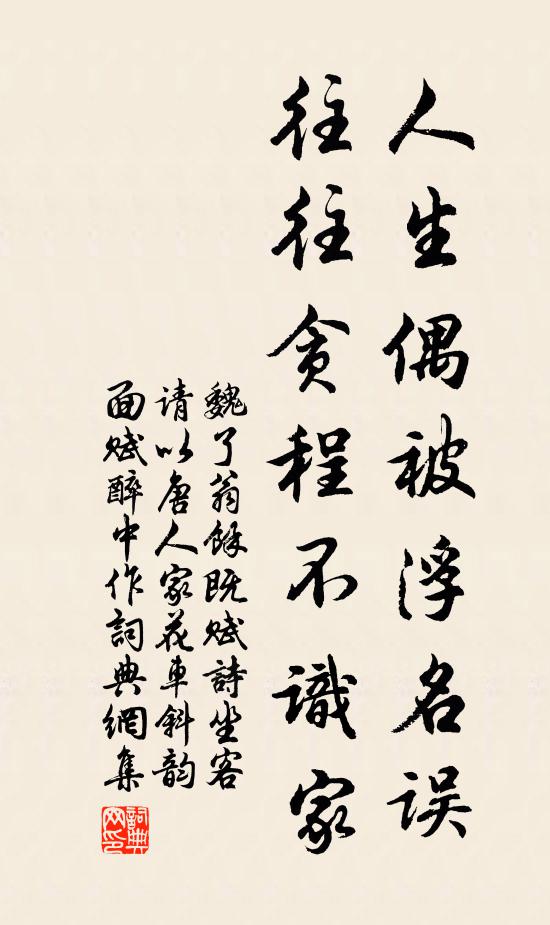 人生偶被浮名误
往往贪程不識家
魏了翁餘既赋詩坐客
请以唐人家花車斜韵
面赋醉中作詞典網集
詞典网印